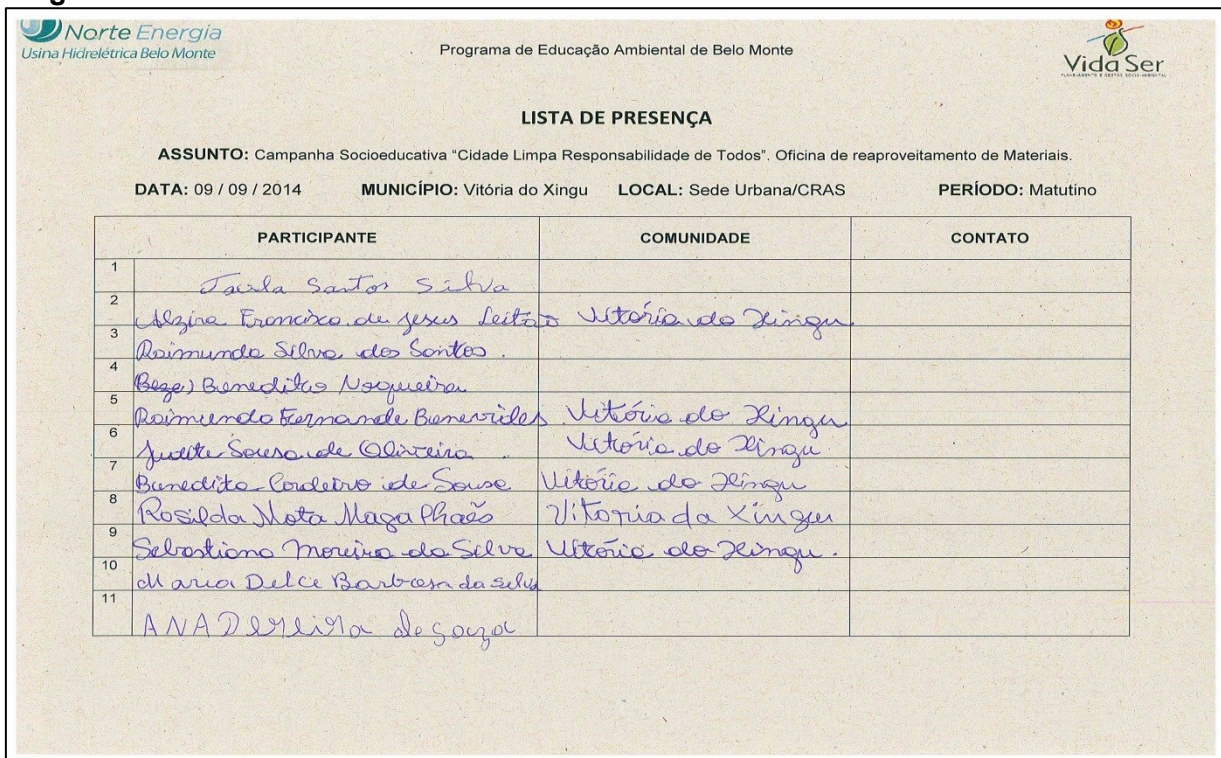 Norte Energia
Usina Hidrelétrica Belo Monte
Programa de Educação Ambiental de Belo Monte
Vida Ser
LISTA DE PRESENÇA
ASSUNTO: Campanha Socioeducativa “Cidade Limpa Responsabilidade de Todos”. Oficina de reaproveitamento de Materiais.
DATA: 09 / 09 / 2014 MUNICÍPIO: Vitória do Xingu LOCAL: Sede Urbana/CRAS PERÍODO: Matutino
PARTICIPANTE COMUNIDADE CONTATO
1 Santos Silva
2 Alzira Francisca de Jesus Leitão Vitória do Xingu
3 Raimunda Silva dos Santos.
4 Beneditas Nogueira
5 Raimundo Fernande Benevides Vitória do Xingu
6 Judite Sousa de Oliveira. Vitória do Xingu
7 Benedita Cordeiro de Sousa Vitória do Xingu
8 Rosilda Mota Magalhães Vitoria da Xingu
9 Sebastiana Moreira da Silva Vitória do Xingu.
10 Maria Delce Barbosa da silva
11 ANA Pereira de Souza